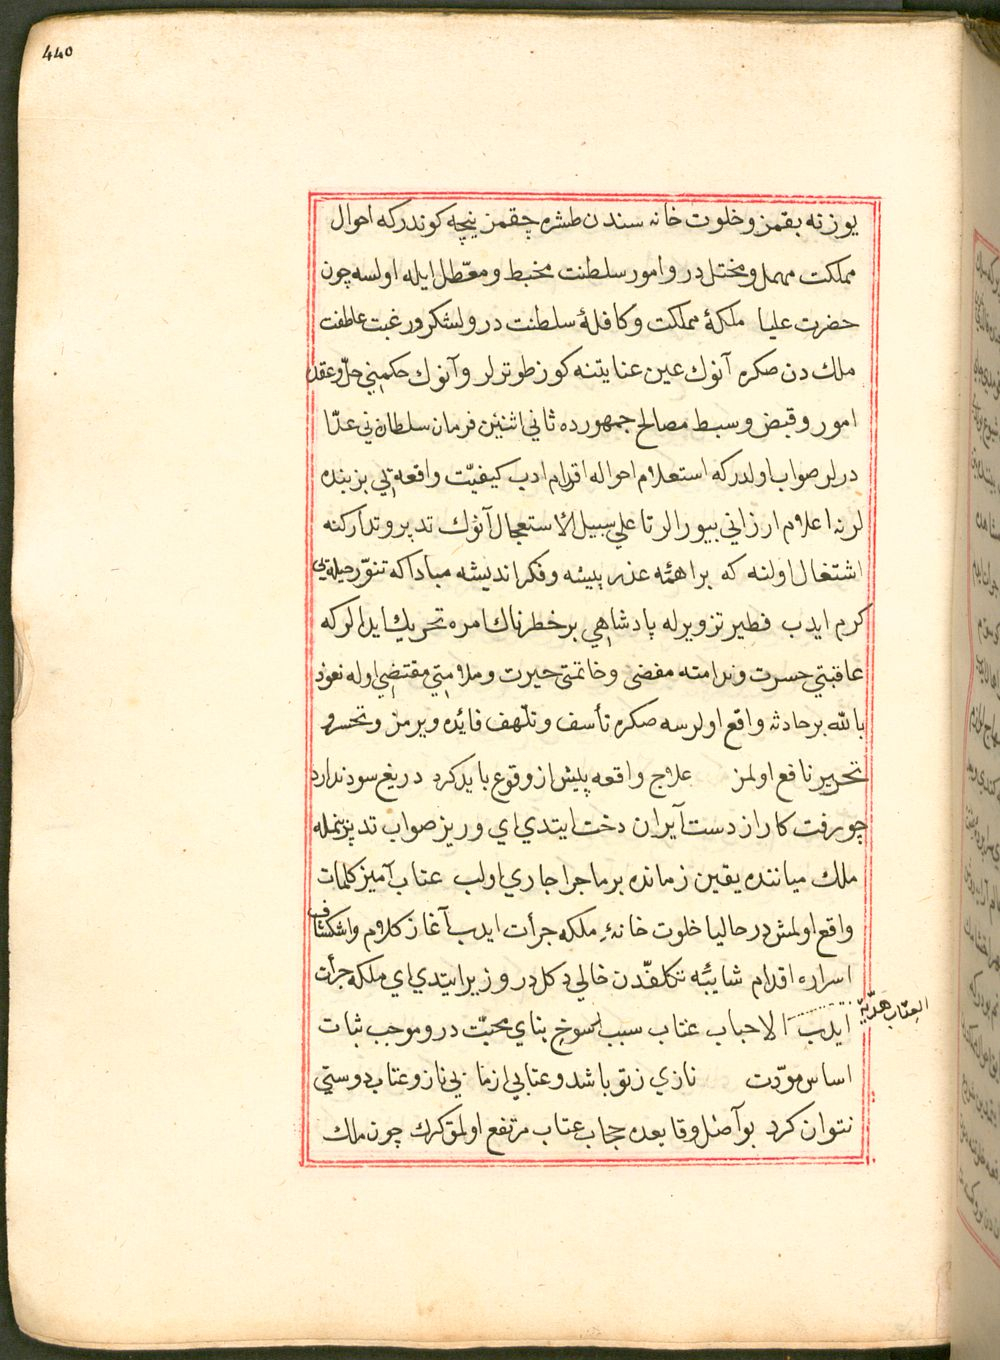 440
یوزنه بقمز و خلوت خانه سندن طشره چقمز نیچه کوندر که احوال
مملکت مهمل و مختل در و امور سلطنت مخبط و معطل ایله اولسه چون
حضرت علیا ملکهٔ مملکت و کافلهٔ سلطنت در و لشکر و رغبت عاطفت
ملك دن صکره آنوك عین عنایتنه کوز طوترلر و آنوك حکمنی حلّ و عقد
امور و قبض و سبط مصالح جمهورده ثانی اثنین فرمان سلطانی عدّ ا
درلر صواب اولدر که استعلام احواله اقدام ادب کیفیّت واقعه یی بز بنده
لرنه اعلام ارزانی بیورالر تا علی سبیل الاستعجال آنوك تدبیر و تدارکنه
اشتغال اولنه که براهمهٔ عذر پیشه و فکر اندیشه مبادا که تنوّر حیله یی
کرم ایدب فطیر تزویرله پادشاهی بر خطرناك امره تحریك ایدالر که
عاقبتی حسرت و ندامته مفضی و خاتمتی حیرت و ملامتی مقتضی اوله نعوذ
بالله بر حادثه واقع اولرسه صکره تأسف و تلّهف فائده ویرمز و تحسر و
تحریر نافع اولمز علاج واقعه پیش از وقوع باید کرد دریغ سود ندارد
چو رفت کار از دست آیران دخت ایتدی ای وریز صواب تدبیر نمله
ملك میاننده یقین زمانده بر ماجرا جاری اولب عتاب آمیز کلمات
واقع اولمش در حالیا خلوت خانهٔ ملکه جرأت ایدب آغاز کلام و اشکشاف
اسراره اقدام شایبهٔ تکلفّدن خالی دکلدر وزیر ایتدی ای ملکه جرأت
ایدب الاحباب عتاب سبب رسوخ بنای محبّت در و موجب ثبات
العتاب هدّیة
اساس مودّت نازی زتو باشد و عتابی از ما بی ناز و عتاب دوستی
نتوان کرد بو آصل وقایعده حجاب عتاب مرتفع اولمق کرك چون ملك